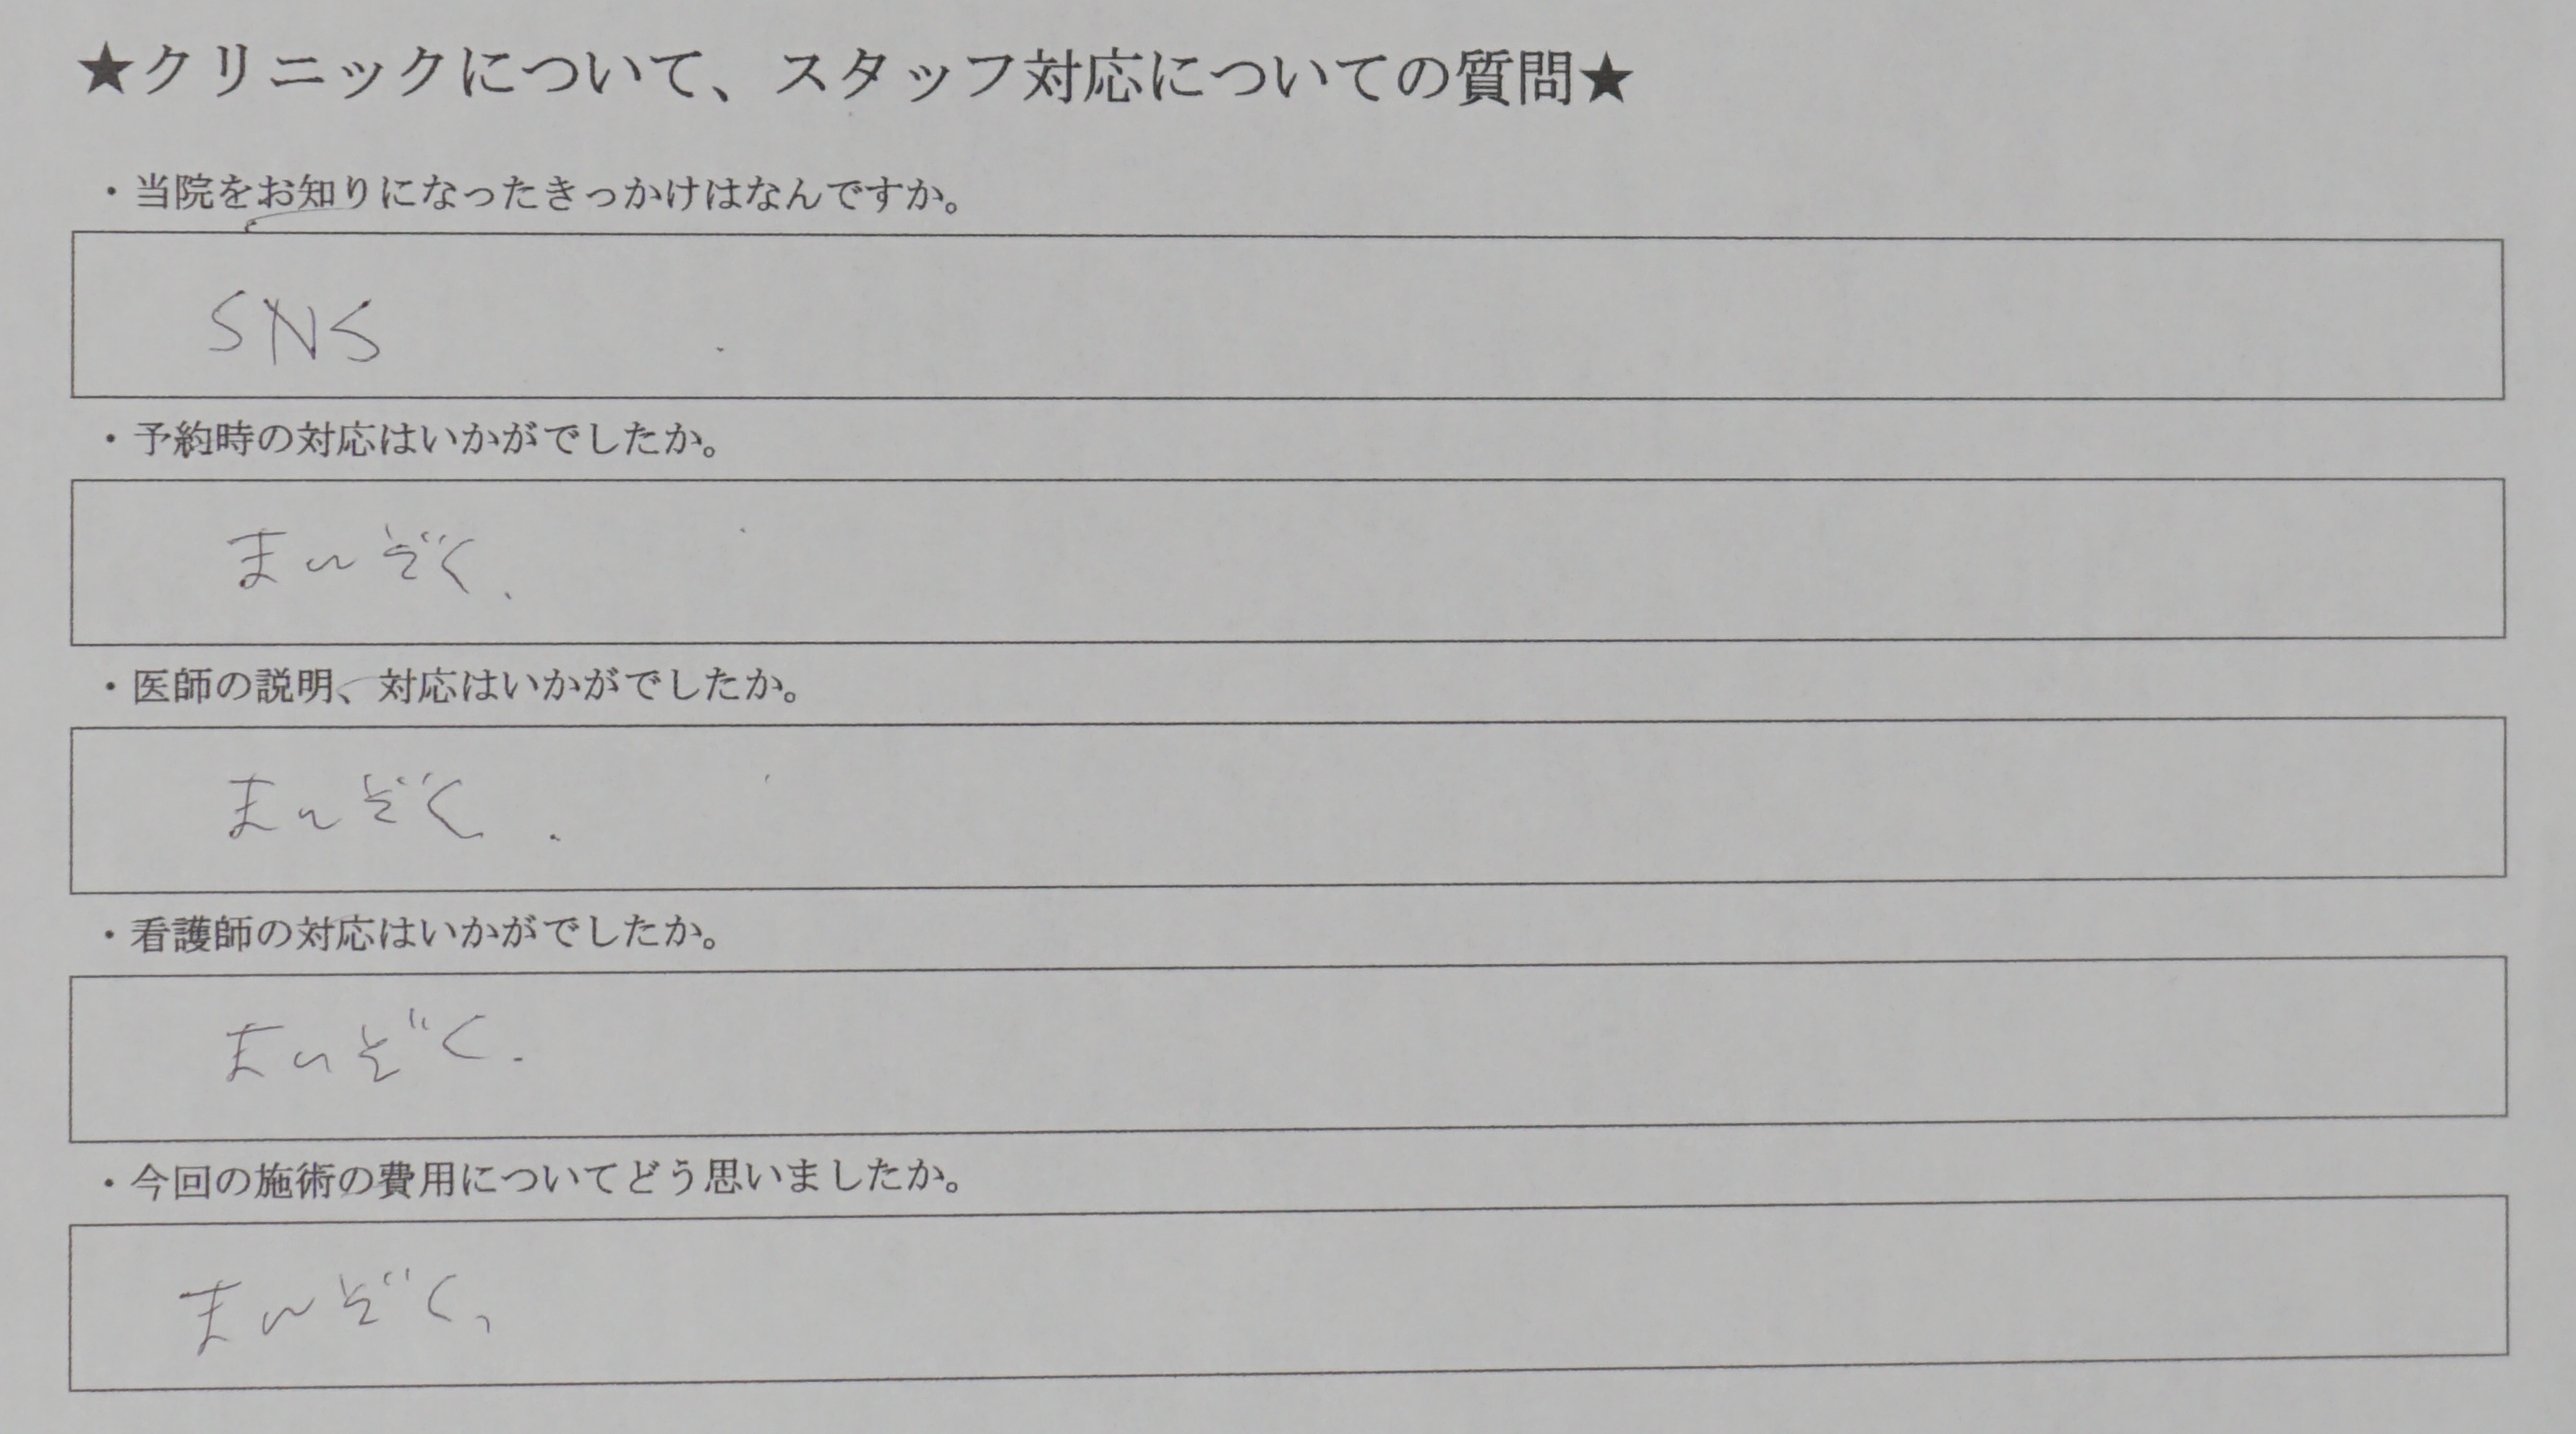 ★クリニックについて、スタッフ対応についての質問★
・当院をお知りになったきっかけはなんですか。
SNS
・予約時の対応はいかがでしたか。
まんぞく、
・医師の説明、対応はいかがでしたか。
まんぞく.
・看護師の対応はいかがでしたか。
まんぞく.
・今回の施術の費用についてどう思いましたか。
まんぞく、